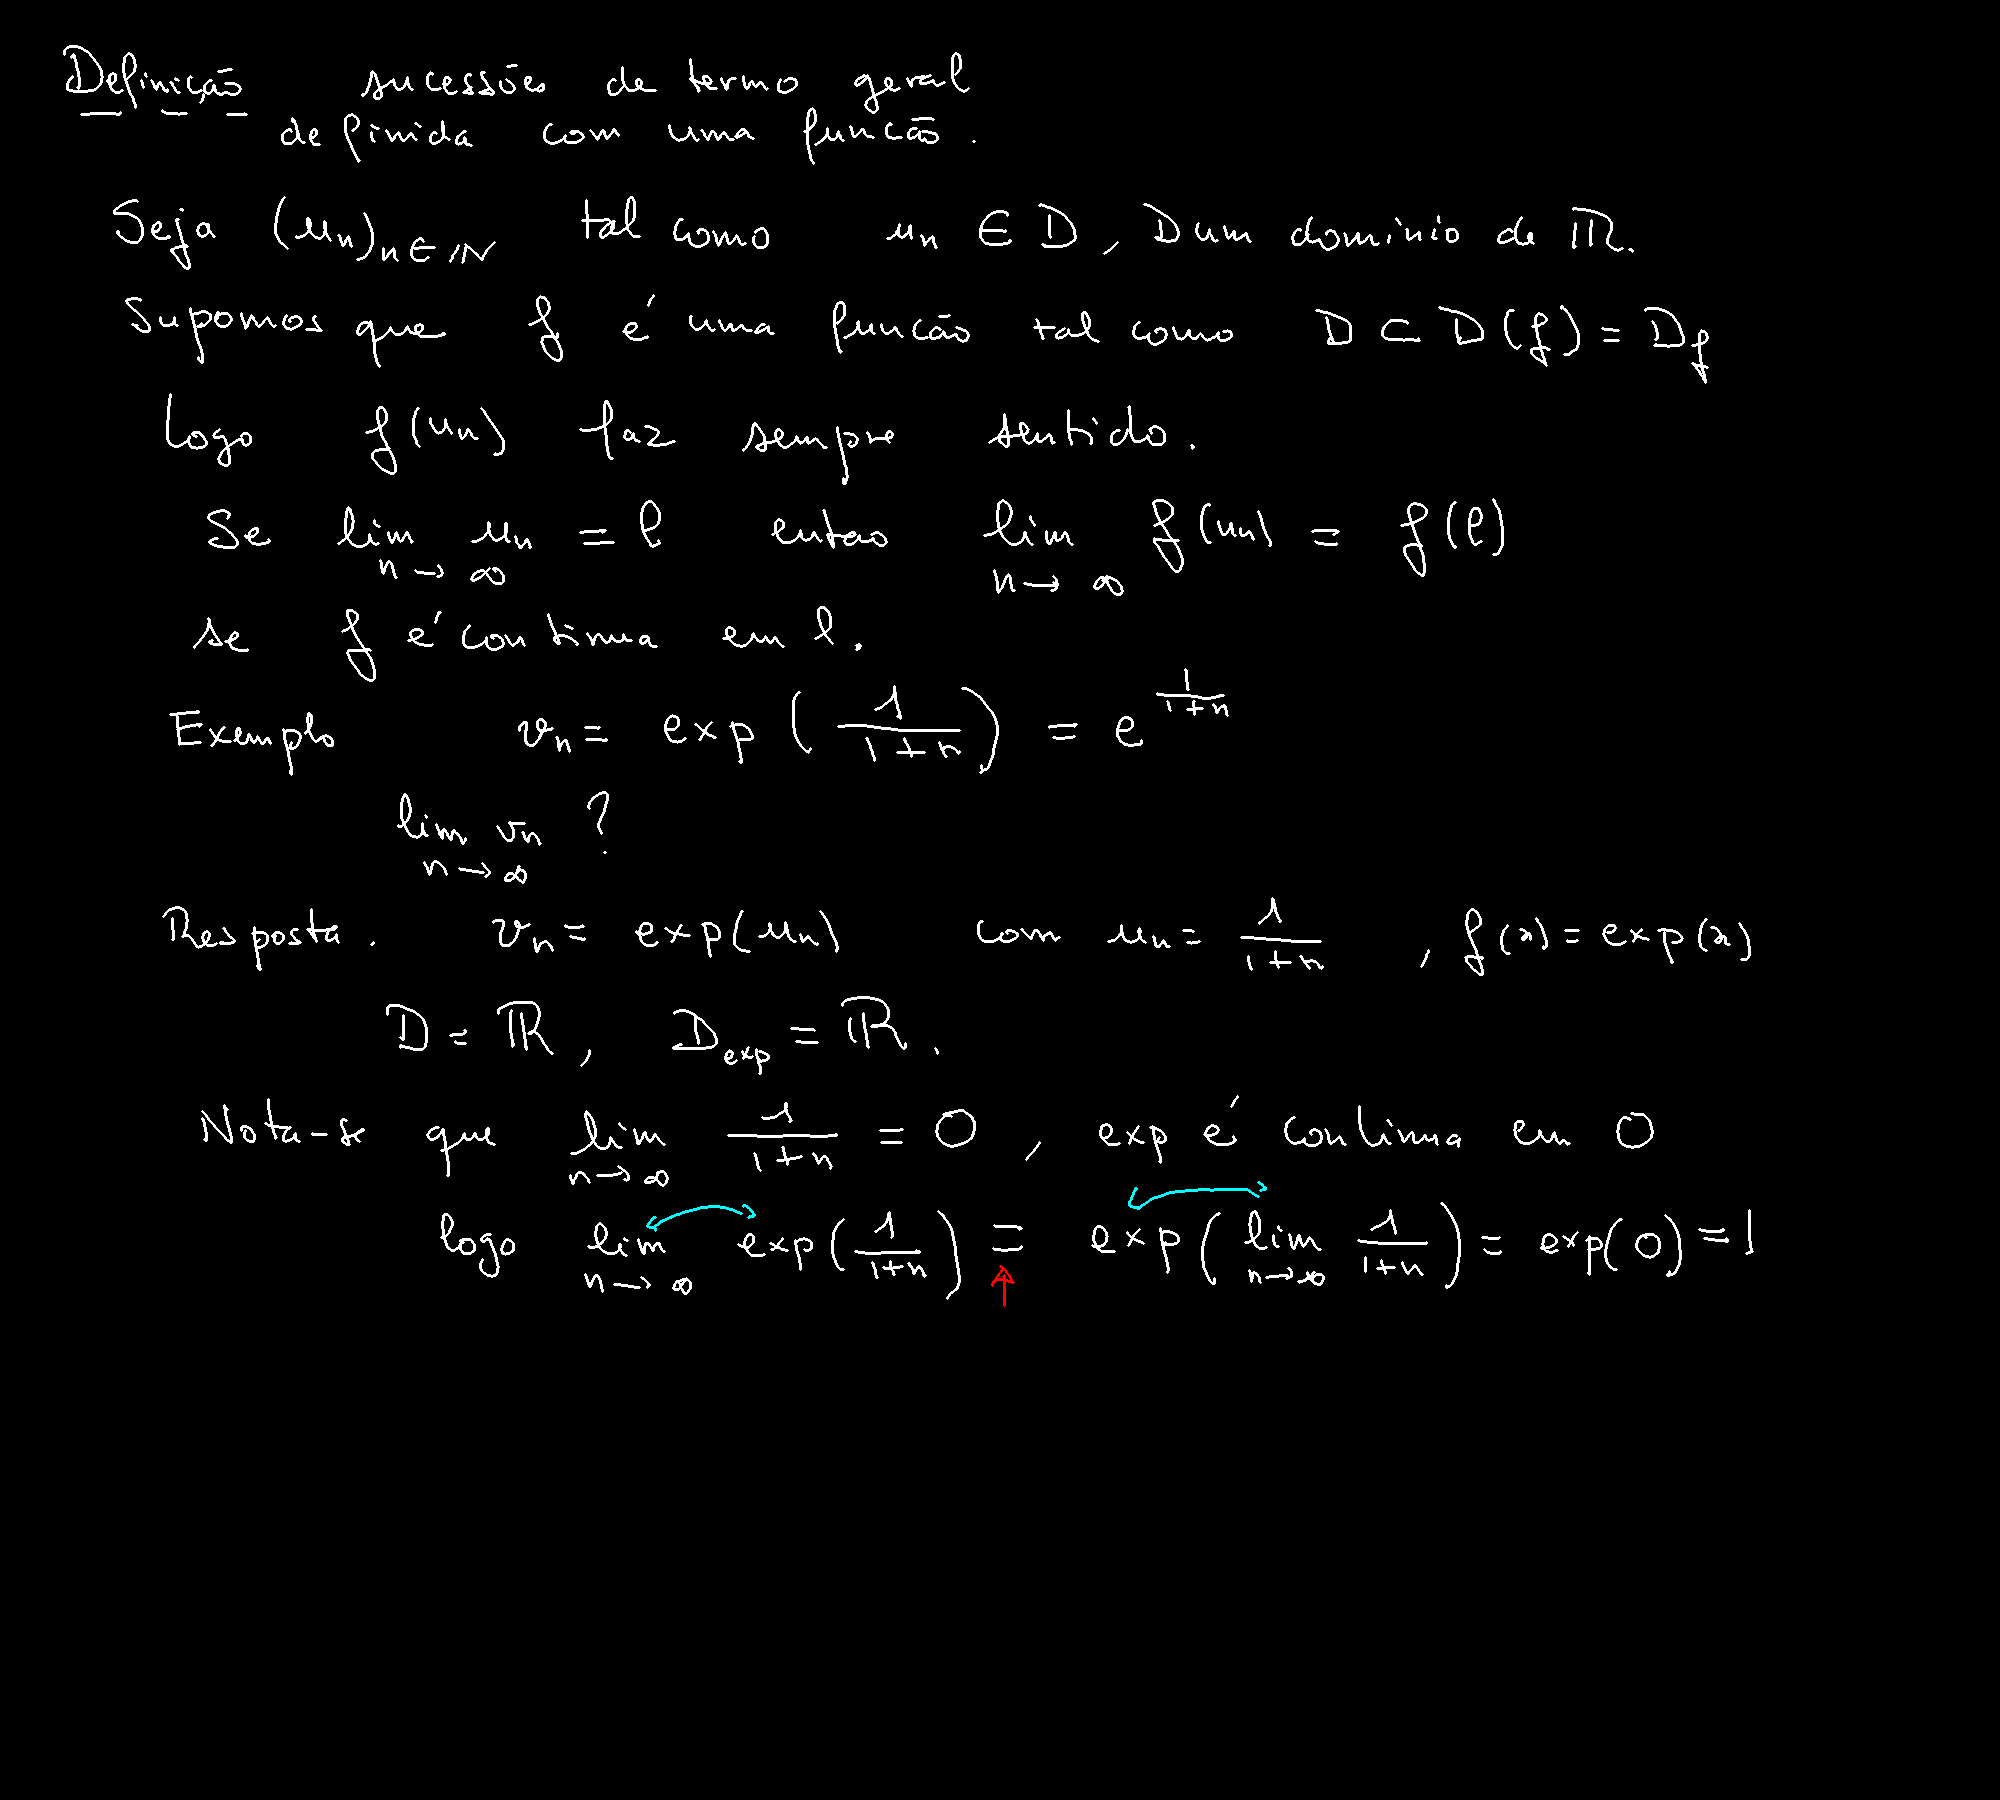 Definição sucessões de termo geral
definida com uma funcão.
Seja (un)n∈ℕ tal como un ∈ D, D um dominio de ℝ.
Supomos que f é uma funcão tal como D ⊂ D(f) = Df
Logo f(un) faz sempre sentido.
Se lim n→∞ un = l entao lim n→∞ f(un) = f(l)
se f é continua em l.
Exemplo vn = exp(1/(1+n)) = e^(1/(1+n))
lim n→∞ vn ?
Resposta. vn = exp(un) com un = 1/(1+n), f(x) = exp(x)
D = ℝ, Dexp = ℝ.
Nota-se que lim n→∞ 1/(1+n) = 0, exp é continua em 0
logo lim n→∞ exp(1/(1+n)) = exp(lim n→∞ 1/(1+n)) = exp(0) = 1